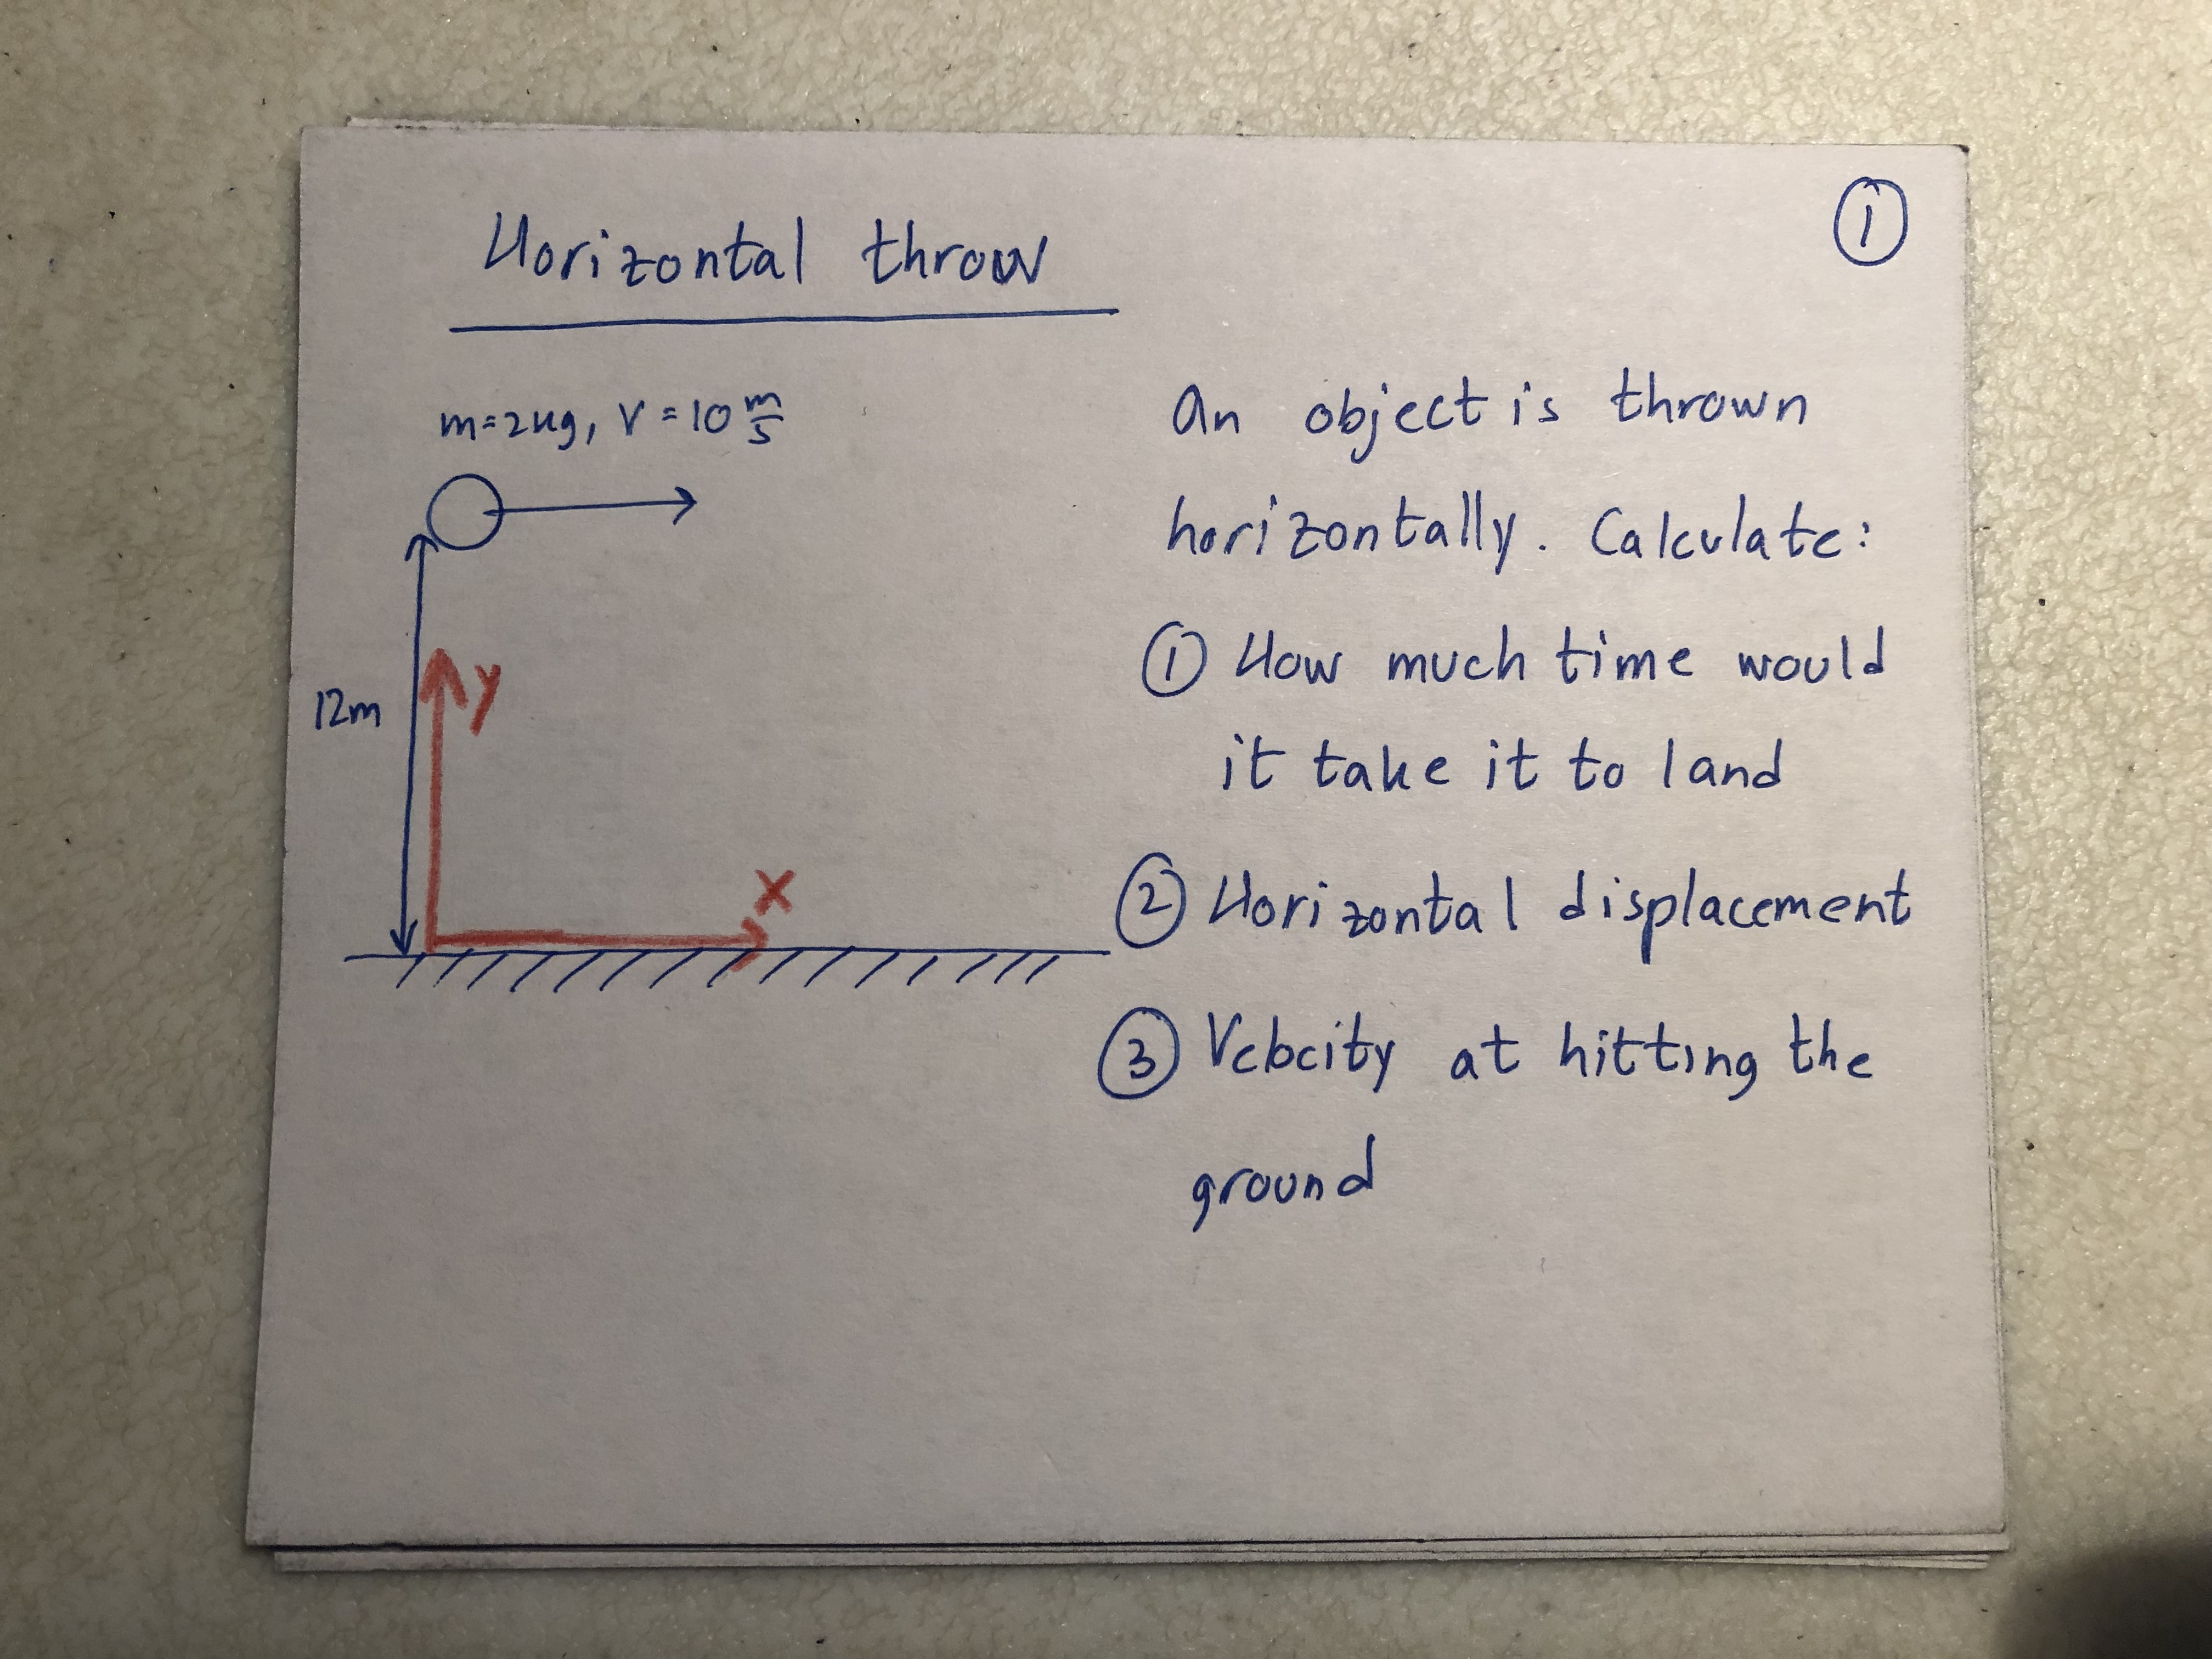 Horizontal throw
①
m=2kg, v=10 m/s
12m
y
x
An object is thrown
horizontally. Calculate:
① How much time would
it take it to land
② Horizontal displacement
③ Velocity at hitting the
ground